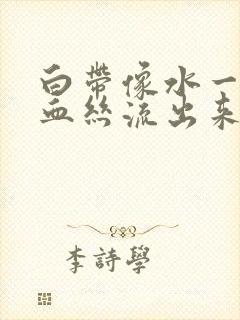 白帶像水一
血絲流出来
李詩學